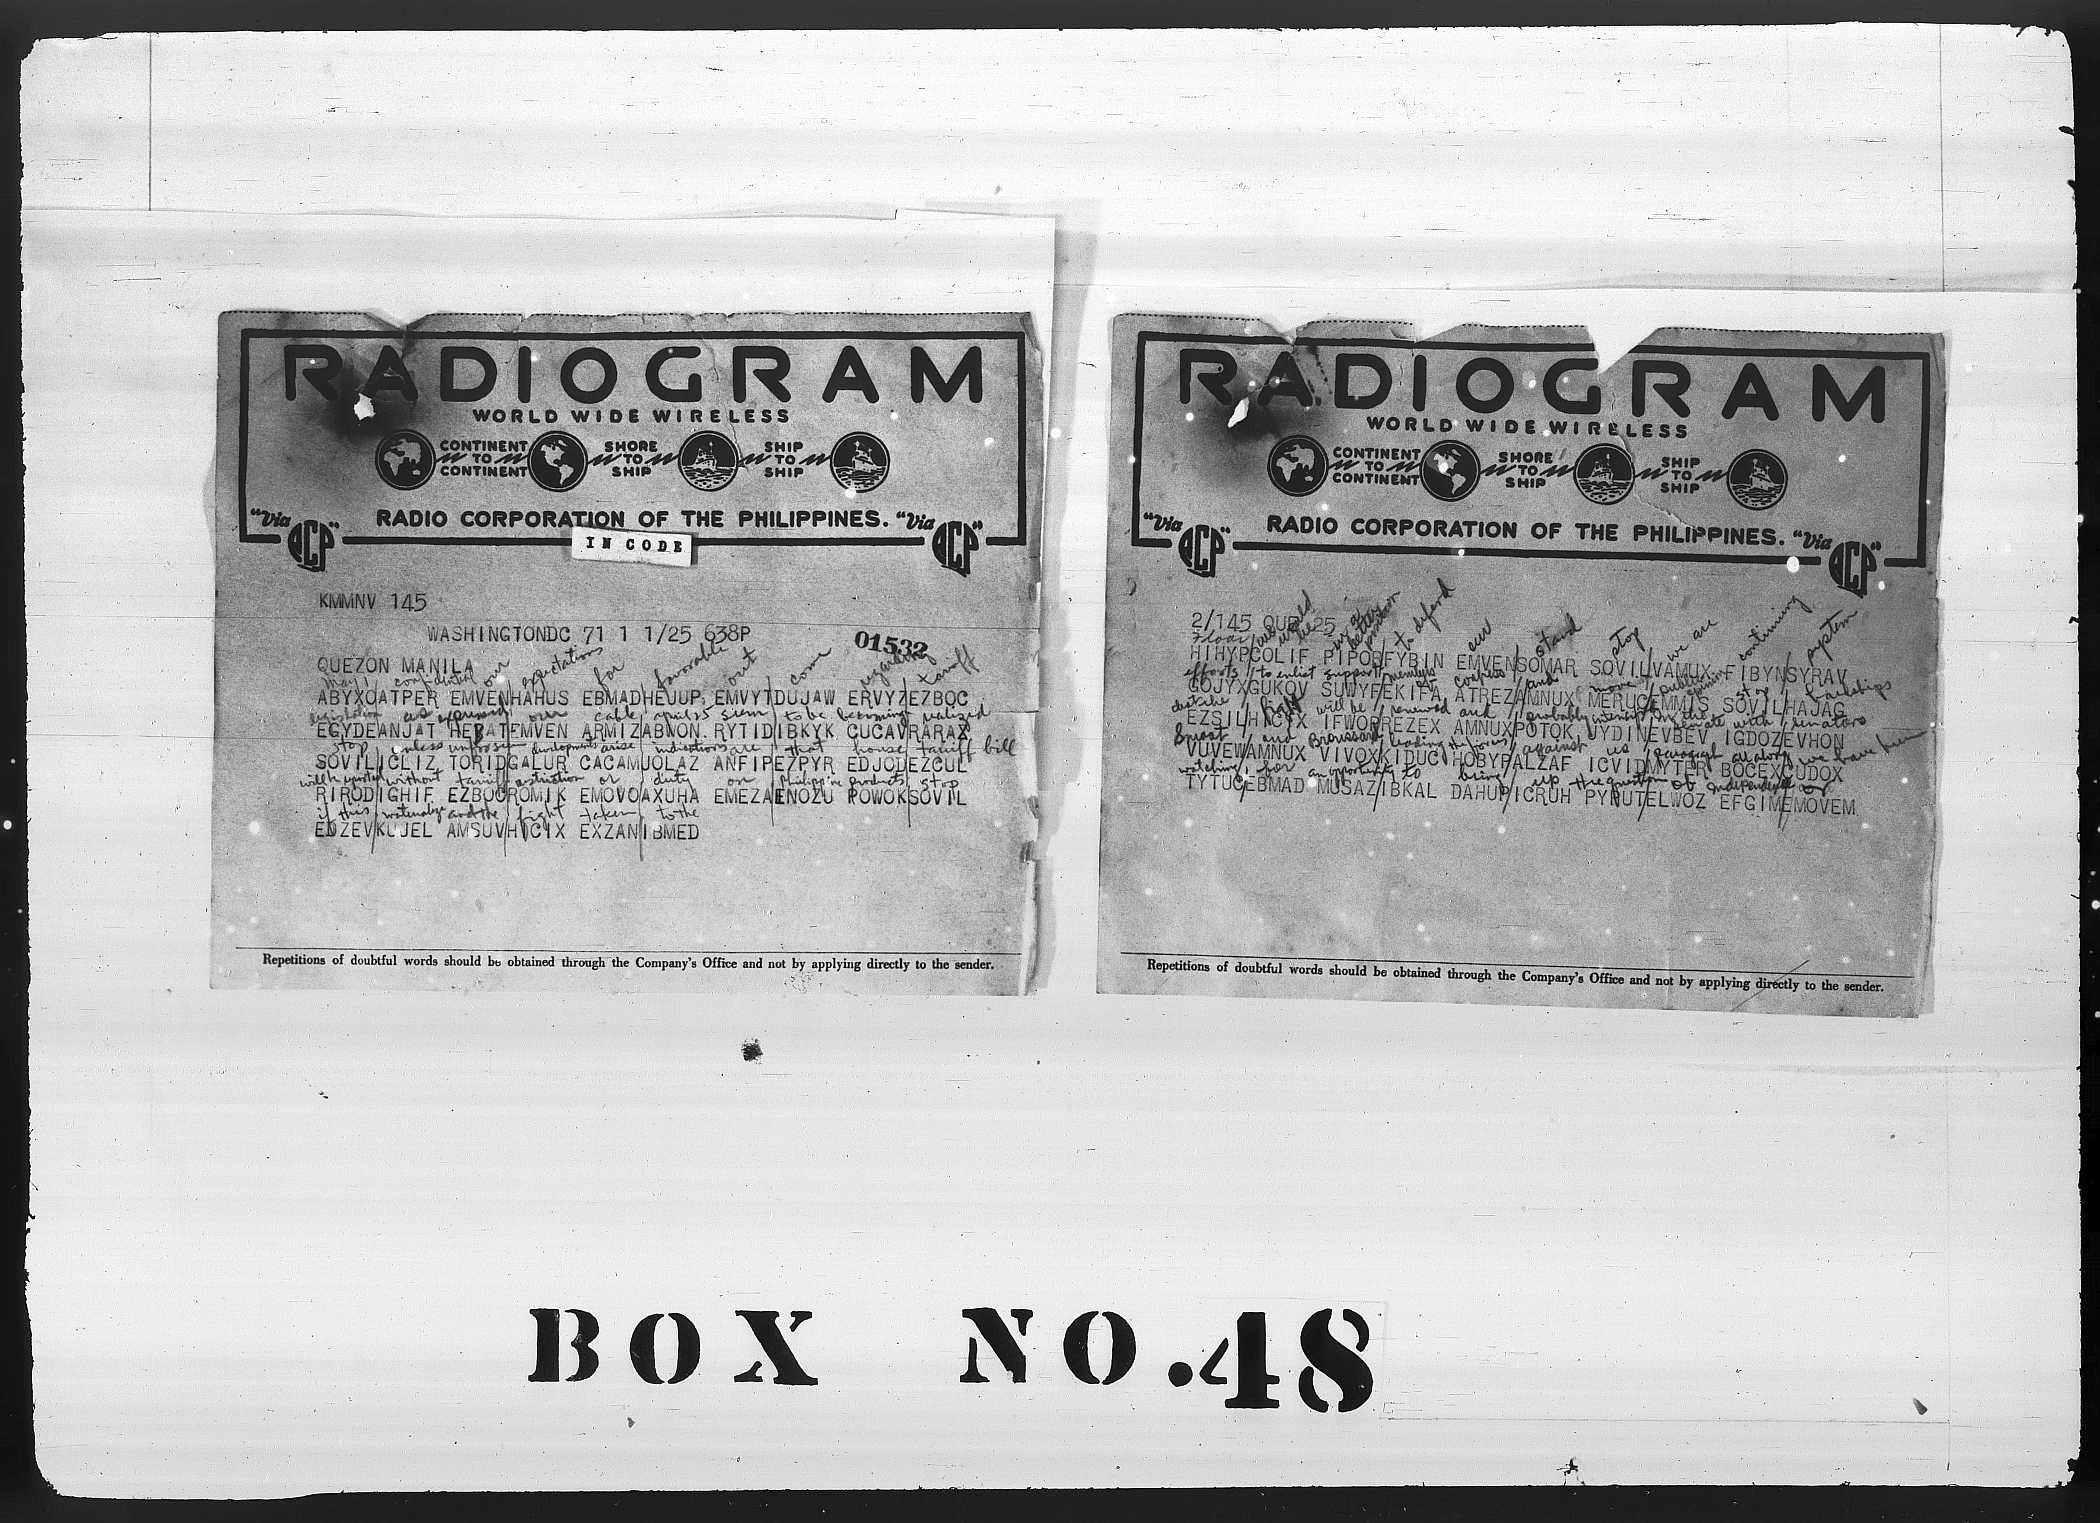 RADIOGRAM
WORLD WIDE WIRELESS
CONTINENT TO CONTINENT
SHORE TO SHIP
SHIP TO SHIP
"Via RCP" RADIO CORPORATION OF THE PHILIPPINES. "Via RCP"
IN CODE
KMMNV 145
WASHINGTONDC 71 1 1/25 638P
01532
QUEZON MANILA
May 1 confidential our expectations for favorable out come regarding tariff
ABYXOATPER EMVENHAHUS EBMADHEJUP EMVYTDUJAW ERVYZEZBOC
legislation as expressed our cable april 25 seem to be becoming realized
EGYDEANJAT HEBATEMVEN ARMIZABNON RYTIDIBKYK CUCAVRARAX
stop unless unforseen developments arise indications are that house tariff bill
SOVILICLIZ TORIDGALUR CACAMUOLAZ ANFIPEZPYR EDJODEZCUL
will be reported without tariff restriction or duty on Philippine products stop
RIRODIGHIF EZBOCROMIK EMOVOAXUHA EMEZAENOZU ROWOKSOVIL
if this materialize and the fight taken to the
EDZEVKUJEL AMSUVHICIX EXZANIBMED
Repetitions of doubtful words should be obtained through the Company's Office and not by applying directly to the sender.
RADIOGRAM
WORLD WIDE WIRELESS
CONTINENT TO CONTINENT
SHORE TO SHIP
SHIP TO SHIP
"Via RCP" RADIO CORPORATION OF THE PHILIPPINES. "Via RCP"
2/145 25
floor we would be in a better position to defend our stand stop we are continuing system
HIHYPCOLIF PIPORFYBIN EMVENSOMAR SOVILVAMUX FIBYNSYRAV
efforts to enlist support members of congress and move public opinion stop hardships
GOJYXGUKOV SUWYFEKIFA ATREZAMNUX MERUCEMMIS SOVILHAJAG
fight will be renewed and probably intensified in the senate with senators
EZSILHICIX IFWORREZEX AMNUXPOTOK UYDINEVBEV IGDOZEVHON
Smoot and Broussard leading the forces against us paragraph all along we have been
VUVEWAMNUX VIVOXKIDUC HOBYPALZAF ICVIDMYTER BOCEXCUDOX
watching for an opportunity to bring up the question of independence
TYTUCEBMAD MUSAZIBKAL DAHUPICRUH PYNUTELWOZ EFGIMEMOVEM
Repetitions of doubtful words should be obtained through the Company's Office and not by applying directly to the sender.
BOX NO.48